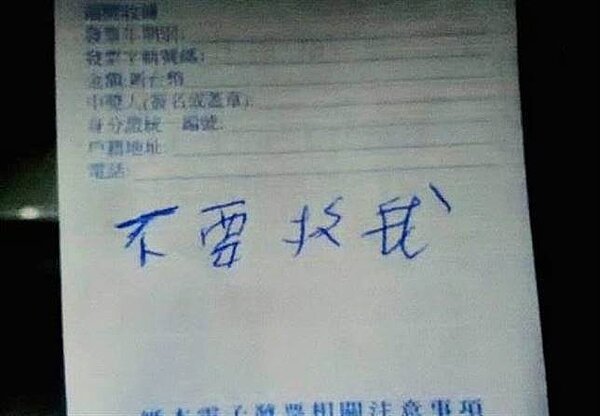 領獎收據
發票年期別:
發票字軌號碼:
金額:新台幣
中獎人(簽名或蓋章):
身分證統一編號:
戶籍地址:
電話:
不要找我
紙本電子發票相關注意事項